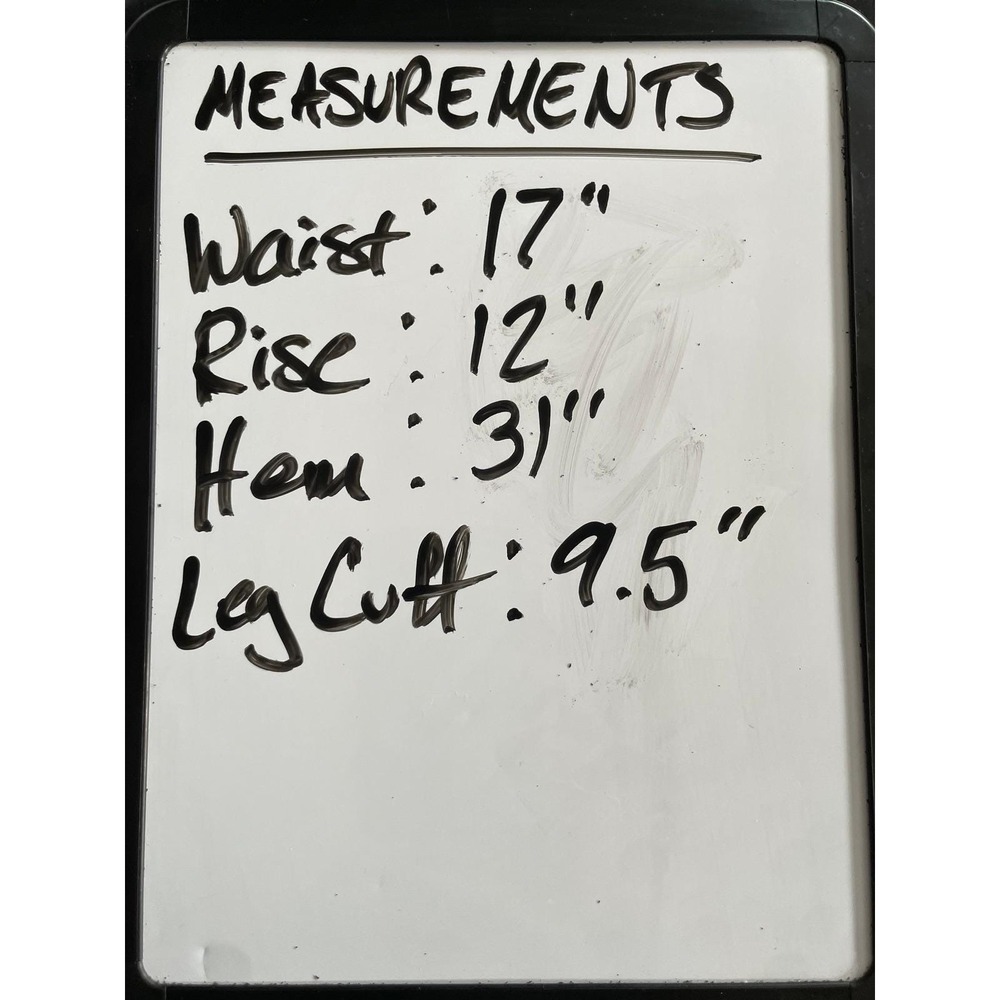 MEASUREMENTS
Waist: 17"
Rise: 12"
Hem: 31"
Leg Cuff: 9.5"